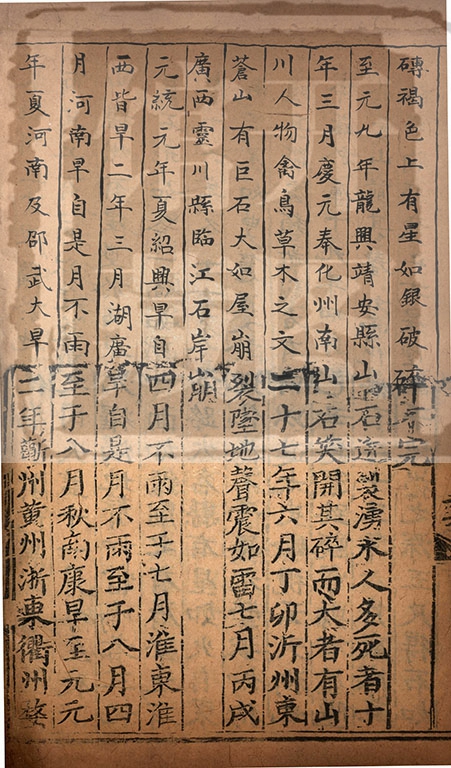 磚褐色上有星如銀破碎不完
至元九年龍興靖安縣山石迸裂湧水人多死者十
年三月慶元奉化州南山石突開其碎而大者有山
川人物禽鳥草木之文二十七年六月丁卯沂州東
蒼山有巨石大如屋崩裂墜地聲震如雷七月丙戌
廣西靈川縣臨江石岸崩
元統元年夏紹興旱自四月不雨至于七月淮東淮
西皆旱二年三月湖廣旱自是月不雨至于八月四
月河南旱自是月不雨至于八月秋南康旱至元元
年夏河南及邵武大旱二年蘄州黃州浙東衢州婺